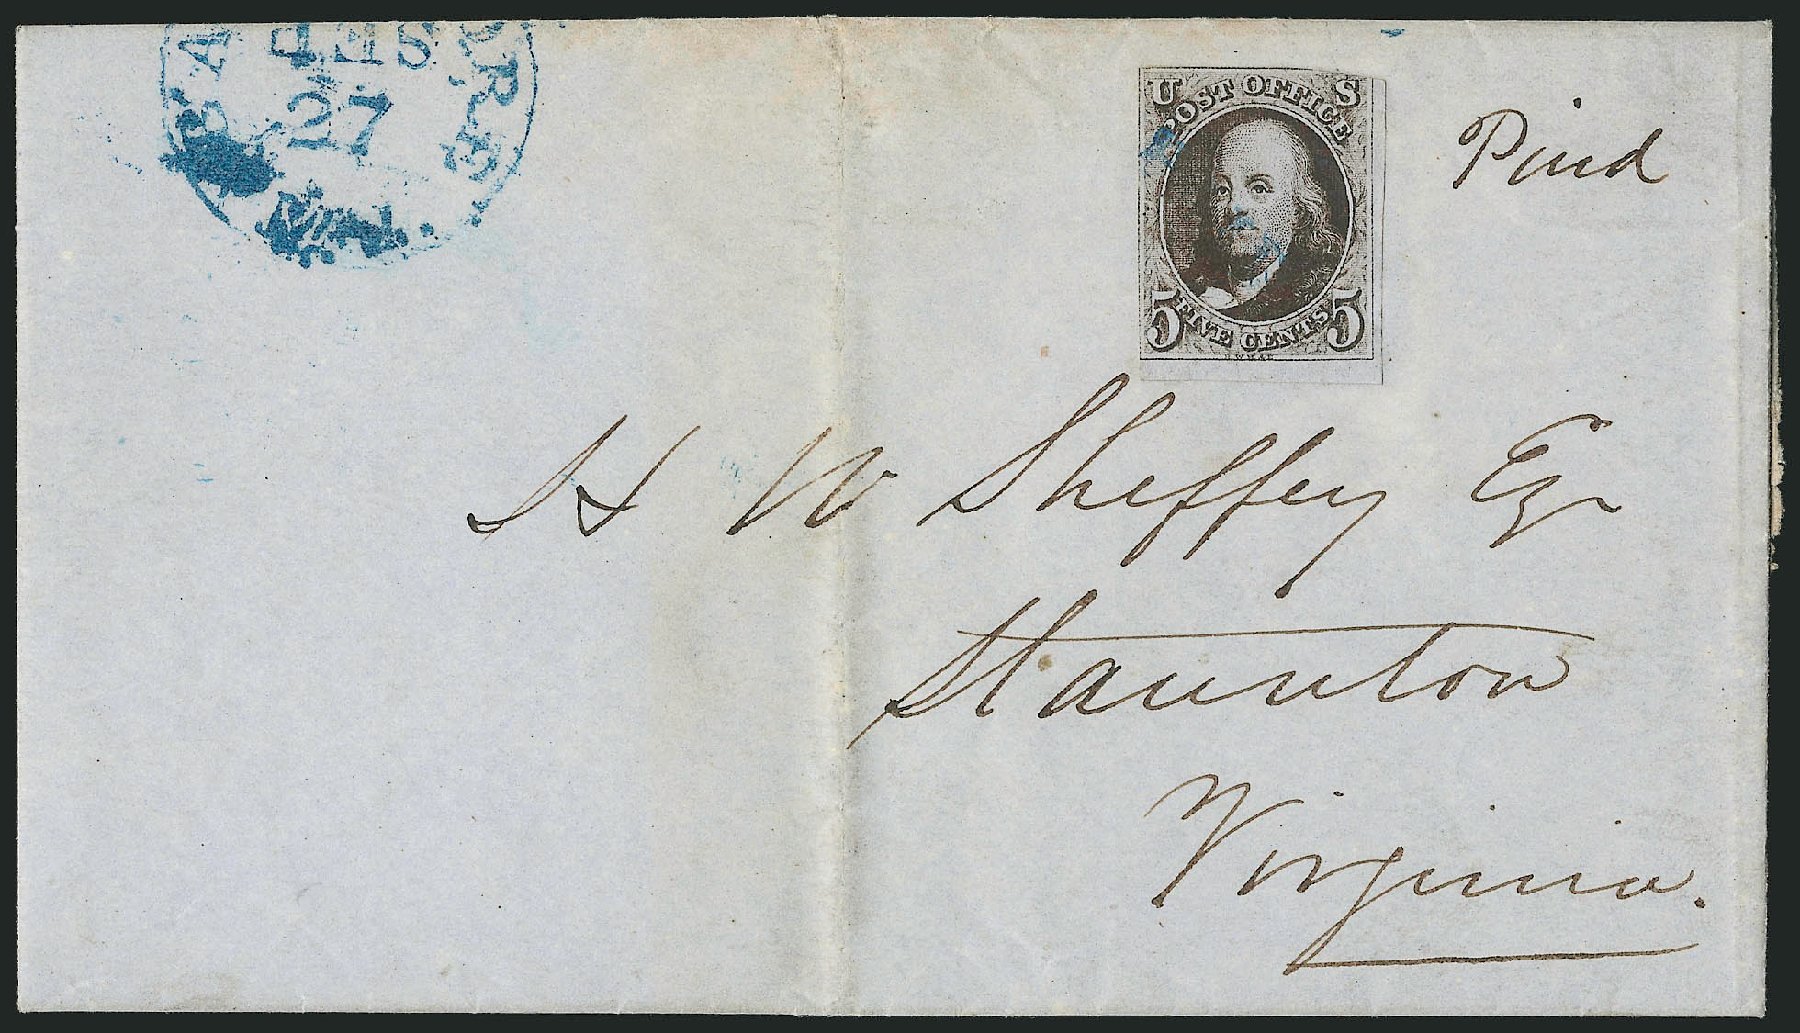 BA
27
U S
POST OFFICE
5 FIVE CENTS 5
Paid
H W Sheffey Esqr
Staunton
Virginia.